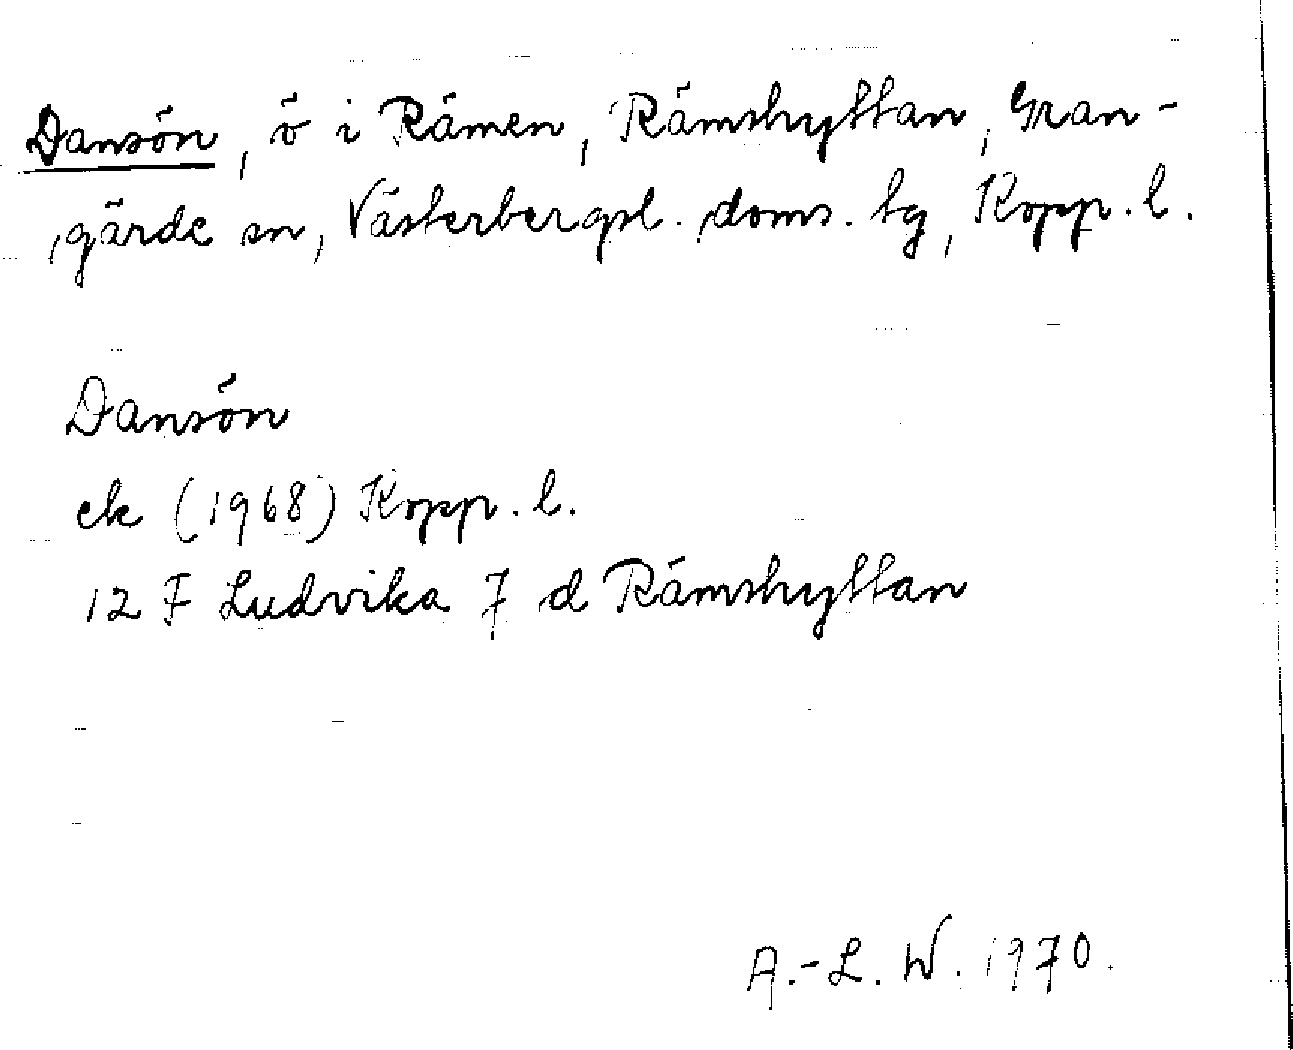 Dansön, ö i Rämen, Rämshyttan, Gran-
gärde sn, Västerbergsl. doms. tg, Kopp. l.
Dansön
ek (1968) Kopp. l.
12 F Ludvika 7 d Rämshyttan
A.-L. W. 1970.